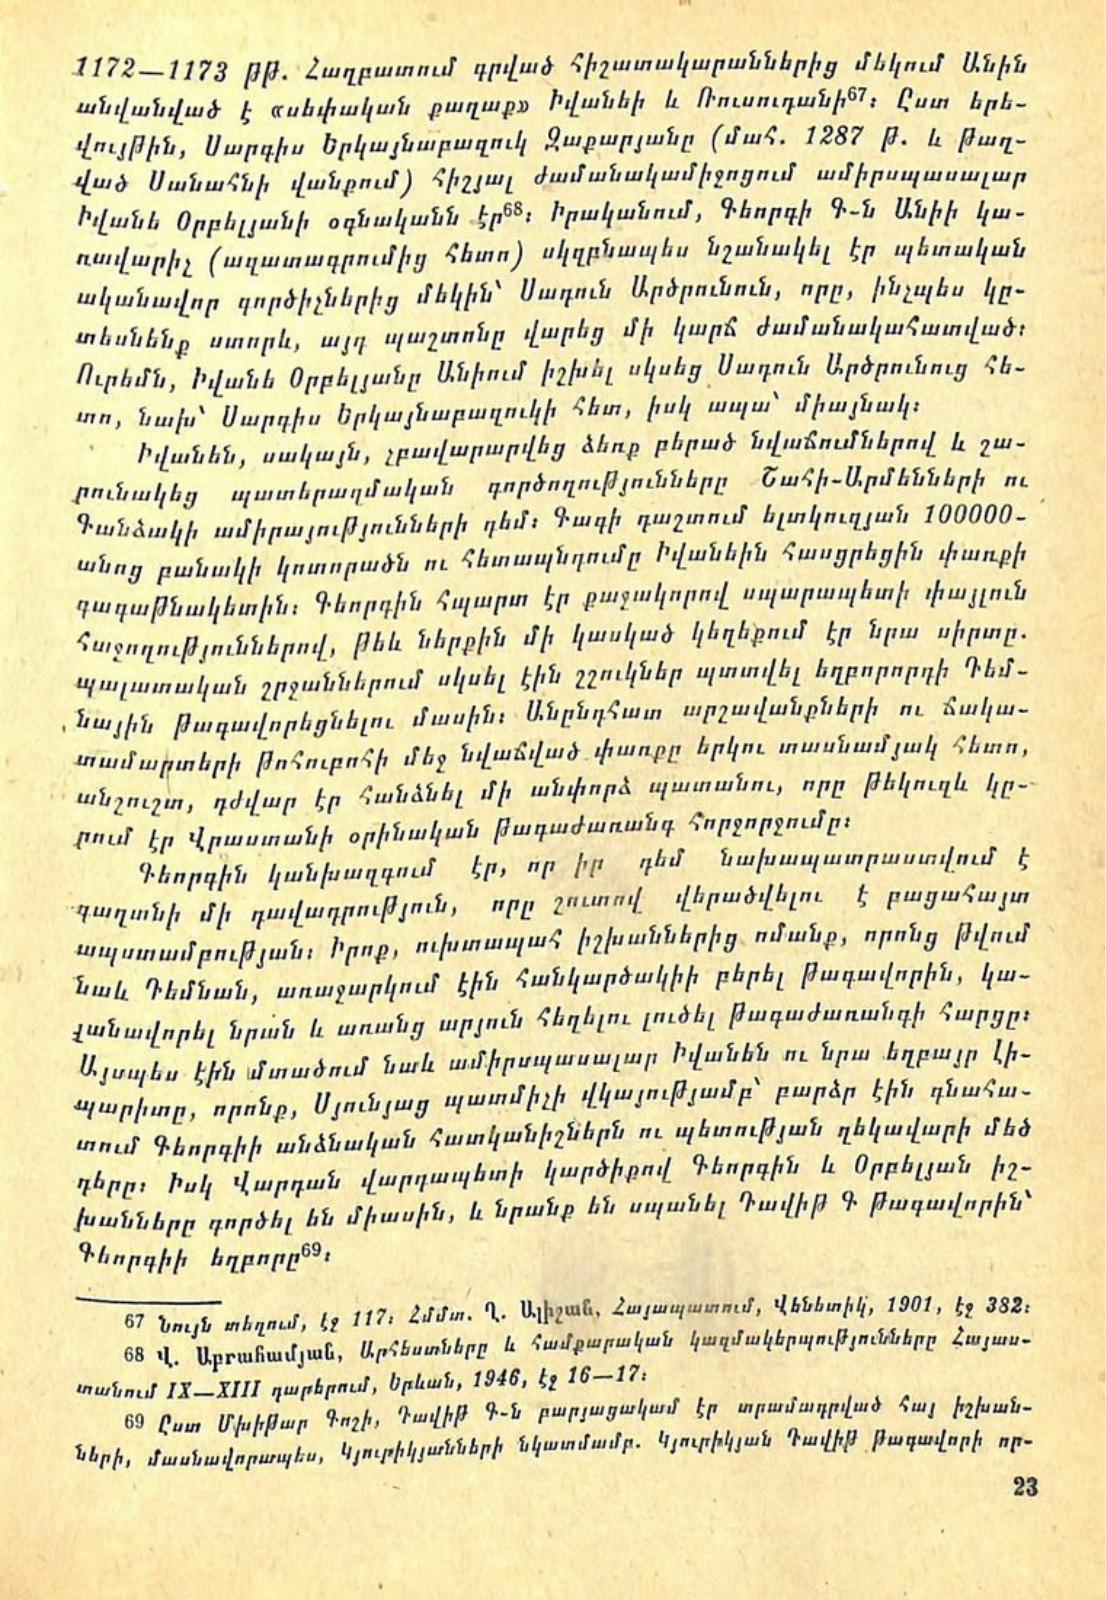 1172—1173 թթ. Հաղբատում գրված հիշատակարաններից մեկում Անին
անվանված է «սեփական քաղաք» Իվանեի և Ռուսուդանի67։ Ըստ երե-
վույթին, Սարգիս Երկայնաբազուկ Զաքարյանը (մահ. 1287 թ. և թաղ-
ված Սանահնի վանքում) հիշյալ ժամանակամիջոցում ամիրսպասալար
Իվանե Օրբելյանի օգնականն էր68։ Իրականում, Գեորգի Գ-ն Անիի կա-
ռավարիչ (ազատագրումից հետո) սկզբնապես նշանակել էր պետական
ականավոր գործիչներից մեկին՝ Սադուն Արծրունուն, որը, ինչպես կը-
տեսնենք ստորև, այդ պաշտոնը վարեց մի կարճ ժամանակահատված։
Ուրեմն, Իվանե Օրբելյանը Անիում իշխել սկսեց Սադուն Արծրունուց հե-
տո, նախ՝ Սարգիս Երկայնաբազուկի հետ, իսկ ապա՝ միայնակ։
Իվանեն, սակայն, չբավարարվեց ձեռք բերած նվաճումներով և շա-
րունակեց պատերազմական գործողությունները Շահի-Արմենների ու
Գանձակի ամիրայությունների դեմ։ Գագի դաշտում ելտկուզյան 100000-
անոց բանակի կոտորածն ու հետապնդումը Իվանեին հասցրեցին փառքի
գագաթնակետին։ Գեորգին հպարտ էր քաջակորով սպարապետի փայլուն
հաջողություններով, թեև ներքին մի կասկած կեղեքում էր նրա սիրտը.
պալատական շրջաններում սկսել էին շշուկներ պտտվել եղբորորդի Դեմ-
նային թագավորեցնելու մասին։ Անընդհատ արշավանքների ու ճակա-
տամարտերի թոհուբոհի մեջ նվաճված փառքը երկու տասնամյակ հետո,
անշուշտ, դժվար էր հանձնել մի անփորձ պատանու, որը թեկուզև կը-
րում էր Վրաստանի օրինական թագաժառանգ հորջորջումը։
Գեորգին կանխազգում էր, որ իր դեմ նախապատրաստվում է
գաղտնի մի դավադրություն, որը շուտով վերածվելու է բացահայտ
ապստամբության։ Իրոք, ուխտապահ իշխաններից ոմանք, որոնց թվում
նաև Դեմնան, առաջարկում էին հանկարծակիի բերել թագավորին, կա-
լանավորել նրան և առանց արյուն հեղելու լուծել թագաժառանգի հարցը։
Այսպես էին մտածում նաև ամիրսպասալար Իվանեն ու նրա եղբայր Լի-
պարիտը, որոնք, Սյունյաց պատմիչի վկայությամբ՝ բարձր էին գնահա-
տում Գեորգիի անձնական հատկանիշներն ու պետության ղեկավարի մեծ
դերը։ Իսկ Վարդան վարդապետի կարծիքով Գեորգին և Օրբելյան իշ-
խանները գործել են միասին, և նրանք են սպանել Դավիթ Գ թագավորին՝
Գեորգիի եղբորը69։
67 Նույն տեղում, էջ 117։ Հմմտ. Ղ. Ալիշան, Հայապատում, Վենետիկ, 1901, էջ 382։
68 Վ. Աբրահամյան, Արհեստները և համքարական կազմակերպությունները Հայաս-
տանում IX—XIII դարերում, Երևան, 1946, էջ 16—17։
69 Ըստ Մխիթար Գոշի, Դավիթ Գ-ն բարյացակամ էր տրամադրված հայ իշխան-
ների, մասնավորապես, Կյուրիկյանների նկատմամբ. Կյուրիկյան Դավիթ թագավորի որ-
23